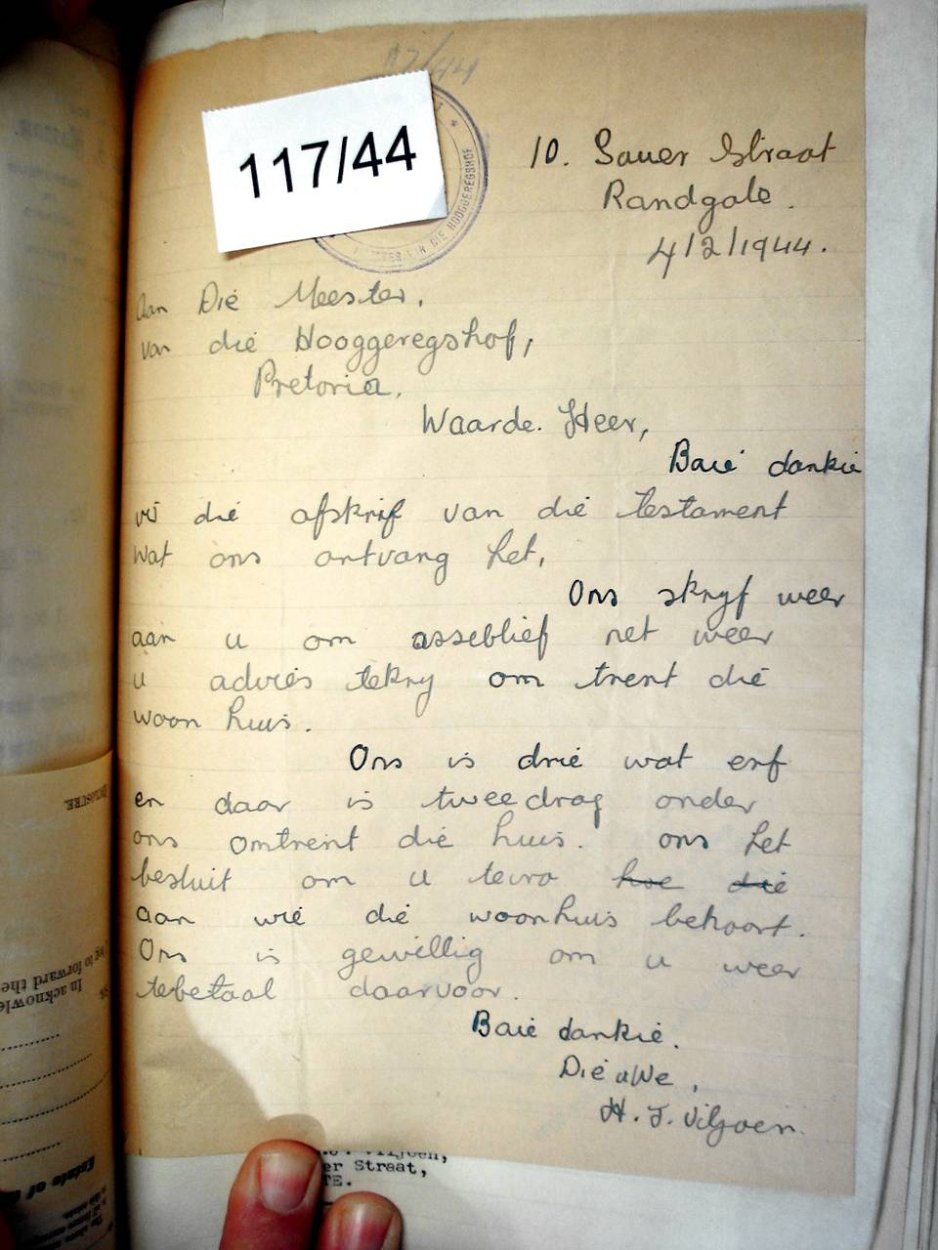 117/44
10. Sauer Straat
Randgate.
4/2/1944.
Aan Die Meester,
van die Hooggeregshof,
Pretoria,
Waarde. Heer,
Baie dankie
vir die afskrif van die testament
wat ons ontvang het,
Ons skryf weer
aan u om asseblief net weer
u advies tekry om trent die
woon huis.
Ons is drie wat erf
en daar is tweedrag onder
ons omtrent die huis. ons het
besluit om u tevra hoe die
aan wie die woonhuis behoort.
Ons is gewillig om u weer
tebetaal daarvoor.
Baie dankie.
Die uwe,
H. J. Viljoen.
DIE HOOGGEREGSHOF
er Straat,
TE.
In acknowle
ng to forward the
Estate of